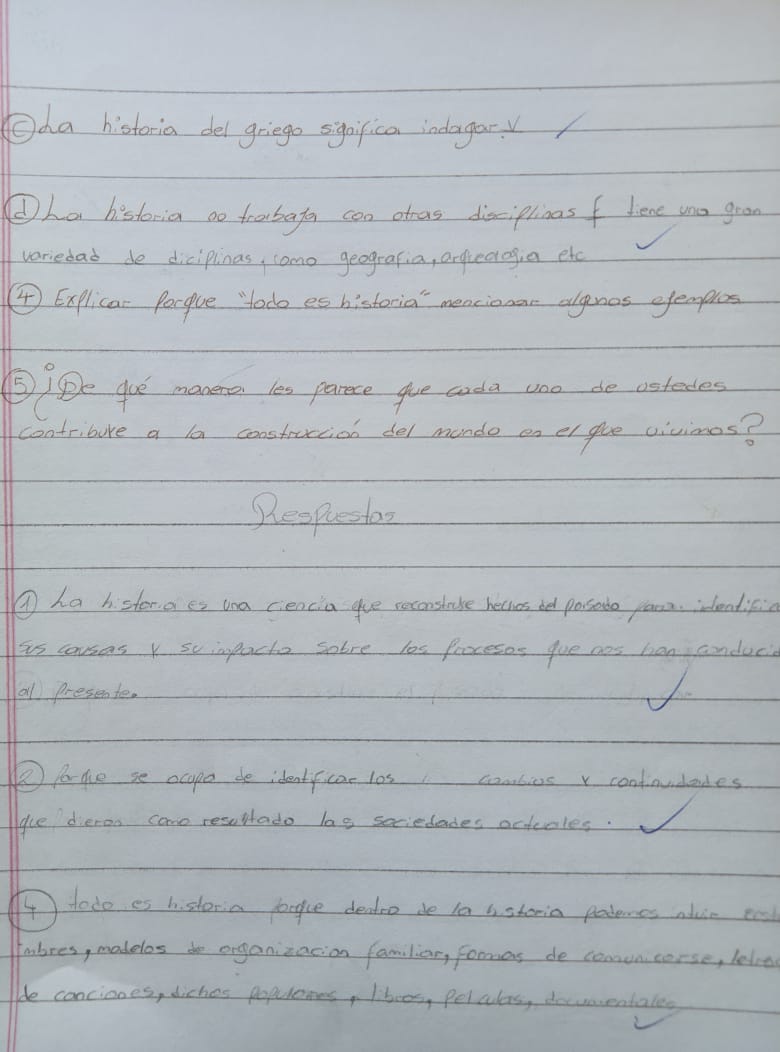 c) La historia del griego significa indagar. V
d) La historia no trabaja con otras disciplinas f tiene una gran
variedad de diciplinas, como geografia, arqueologia etc
4) Explicar Porque "todo es historia" mencionar algunos ejemplos
5) ¿De qué manera les parece que cada uno de ustedes
contribuye a la construcción del mundo en el que vivimos?
Respuestas
1) La historia es una ciencia que reconstruye hechos del pasado para identifica
sus causas y su impacto sobre los Procesos que nos han conducid
al Presente.
2) Porque se ocupa de identificar los cambios y continuidades
que dieron como resultado las sociedades actuales.
4) todo es historia porque dentro de la historia podemos
mbres, modelos de organizacion familiar, formas de comunicarse, letra
de canciones, dichos populares, libros, Peliculas, documentales